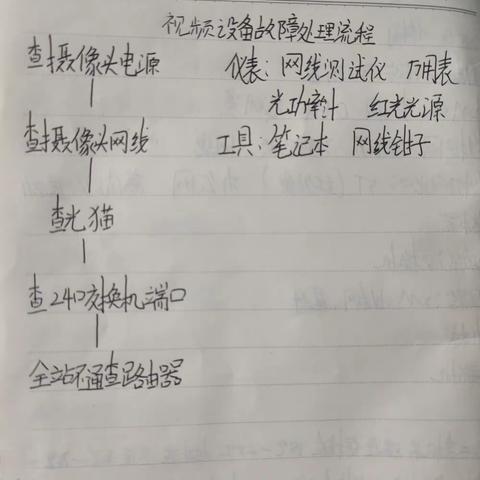 视频设备故障处理流程
查摄像头电源 仪表：网线测试仪 万用表
光功率计 红光光源
查摄像头网线 工具：笔记本 网线钳子
查光猫
查240交换机端口
全站不通查路由器